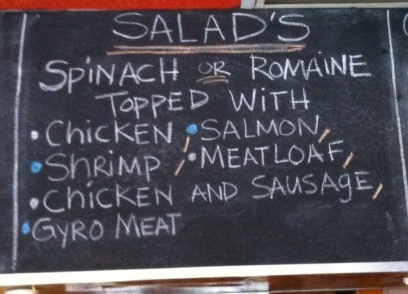 SALAD'S
SPINACH OR ROMAINE
TOPPED WITH
•Chicken, •SALMON,
•SHRIMP, •MEATLOAF,
•CHICKEN AND SAUSAGE,
•GYRO MEAT